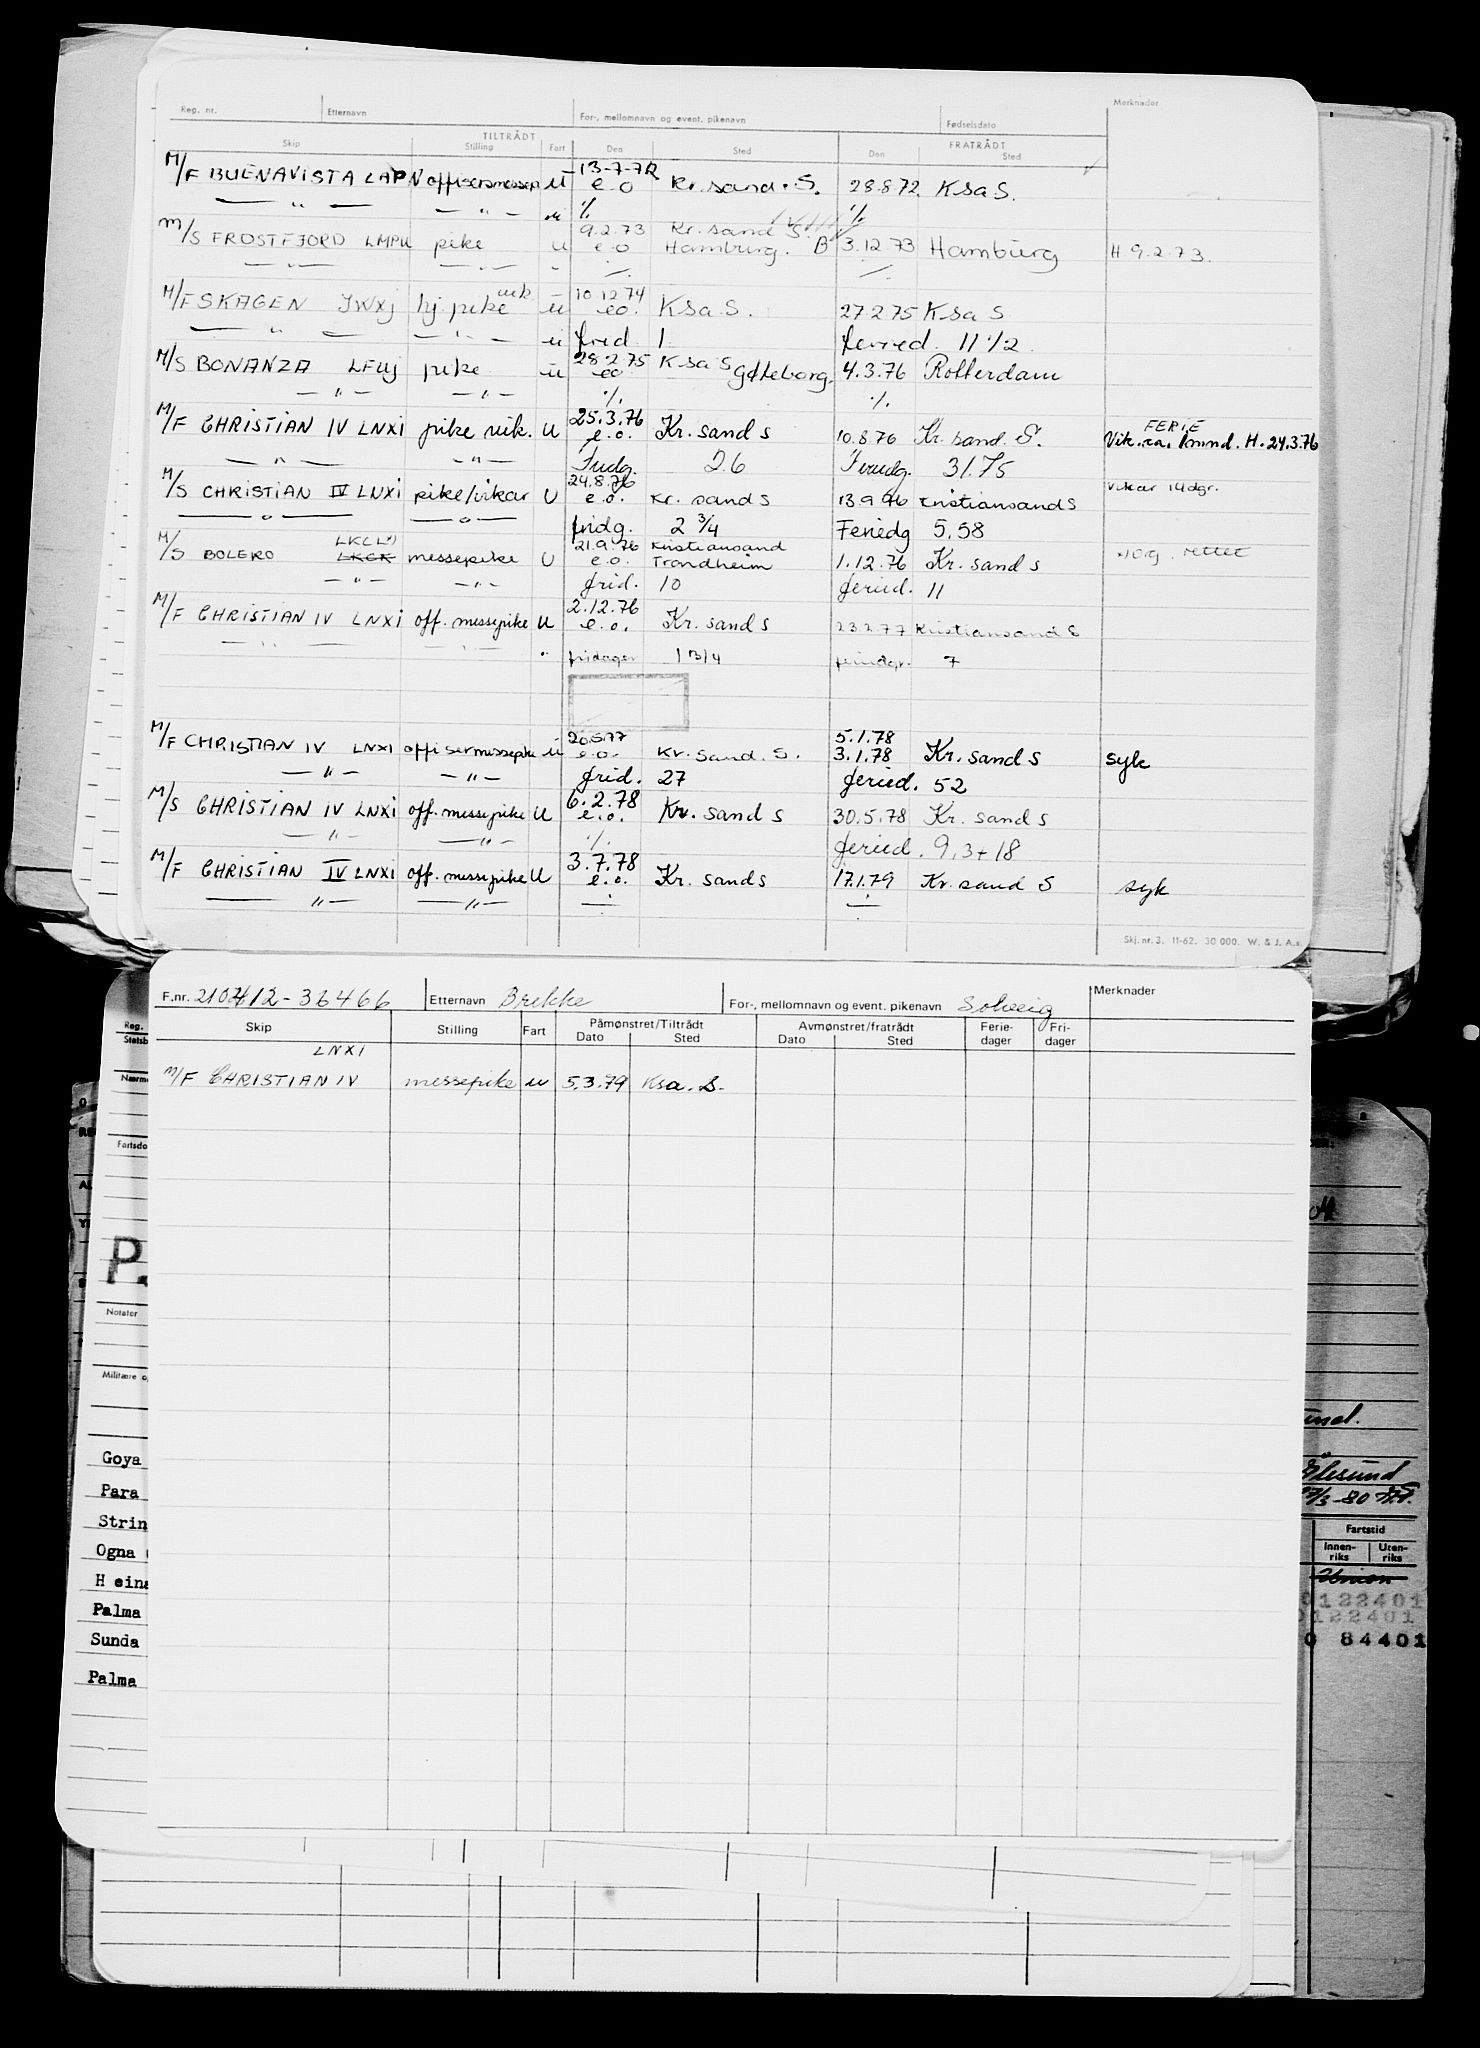 Reg. nr. Etternavn For-, mellomnavn og event. pikenavn Fødselsdato Merknader
TILTRÅDT FRATRÅDT
Skip Stilling Fart Den Sted Den Sted
13-7-72
M/F BUENAVISTA LAPN offisersmessep U e.o Kr. sand. S. 28.8.72 Ksa S.
— " — — " — " % %
9.2.73 Kr. sand S.
M/S FROSTFJORD LMPU pike u e.o Hamburg. B 3.12.73 Hamburg H 9.2.73.
— " — — " — "
10.12.74
M/F SKAGEN JWXJ hj. pike vik. u eo. Ksa S. 27.2.75 Ksa S
— " — — " — u frid. 1 feried. 11 1/2
28.2.75 Ksa S
M/S BONANZA LFUJ pike u eo. Gøteborg. 4.3.76 Rotterdam
— " — — " — % %
25.3.76 FERIE
M/F CHRISTIAN IV LNXI pike vik. U e.o. Kr. sand S 10.8.76 Kr. sand. S. Vik. ca. 1 mnd. H. 24.3.76
— " — — " — Fridg. 26 Feriedg. 31.75
24.8.76
M/S CHRISTIAN IV LNXI pike/vikar U e.o. Kr. sand S 13.9.76 Kristiansand S vikar 14dgr.
— " — — " — fridg. 2 3/4 Feriedg 5.58
LKCL 21.9.76 Kristiansand
M/S BOLERO LKCK messepike U e.o. Trondheim 1.12.76 Kr. sand S rettet
— " — — " — frid. 10 feried. 11
2.12.76
M/F CHRISTIAN IV LNXI off. messepike U e.o. Kr. sand S 23.2.77 Kristiansand S
— " — — " — " fridager 1 3/4 feriedgr. 7
20.5.77 5.1.78
M/F CHRISTIAN IV LNXI offisermessepike U e.o. Kr. sand. S. 3.1.78 Kr. sand S syk
— " — — " — frid. 27 feried. 52
6.2.78
M/S CHRISTIAN IV LNXI off. messepike U e.o. Kr. sand S 30.5.78 Kr. sand S
— " — — " — % feried. 9,3+18
3.7.78
M/F CHRISTIAN IV LNXI off. messepike U e.o. Kr. sand S 17.1.79 Kr. sand S syk
— " — — " —
Skj. nr. 3. 11-62. 30 000. W. & J. A.s.
F.nr. 210412-36466 Etternavn Brekke For-, mellomnavn og event. pikenavn Solveig Merknader
Skip Stilling Fart Påmønstret/Tiltrådt Avmønstret/fratrådt Ferie- Fri-
Dato Sted Dato Sted dager dager
LNXI
M/F CHRISTIAN IV messepike u 5.3.79 Ksa. S.
Reg.
Statsb
Nærme
Fartsdo
P.
Notater
Militære o
Goya
Para
Strin
Ogna
Heina
Palma
Sunda
Palma
Ålesund
27/3-80
Fartstid
Innen- Uten-
riks riks
Union
0122401
0122401
0 84401